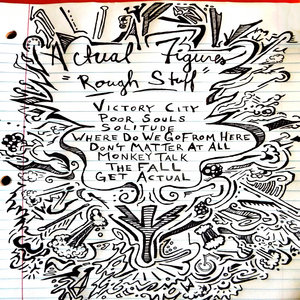 Actual Figures
"Rough Stuff"
Victory City
Poor Souls
Solitude
Where Do We Go From Here
Dont Matter At All
Monkey Talk
The Fall
Get Actual